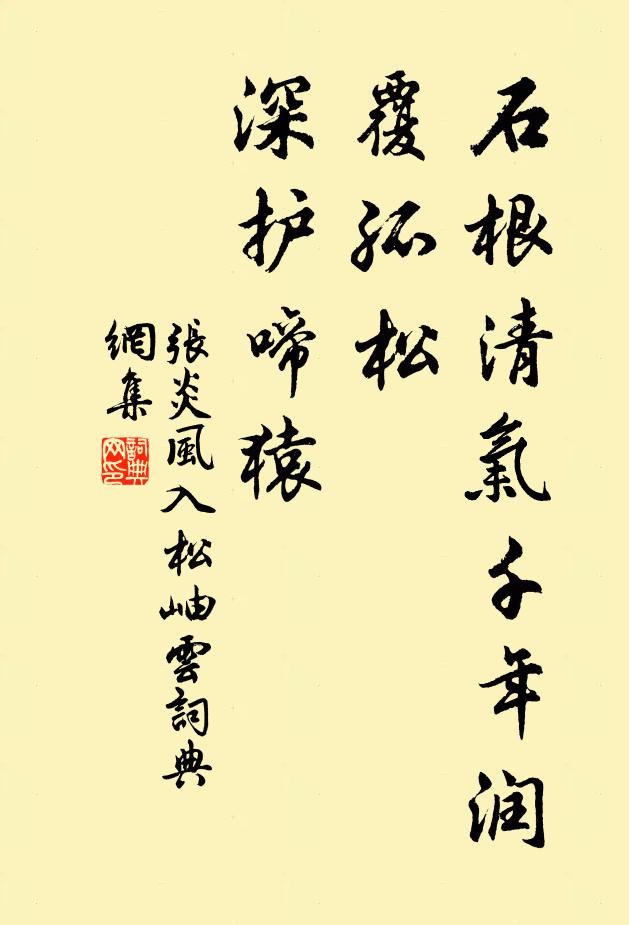 石根清氣千年润
覆孤松
深护啼猿
張炎風入松岫雲詞典
網集
詞典
网印